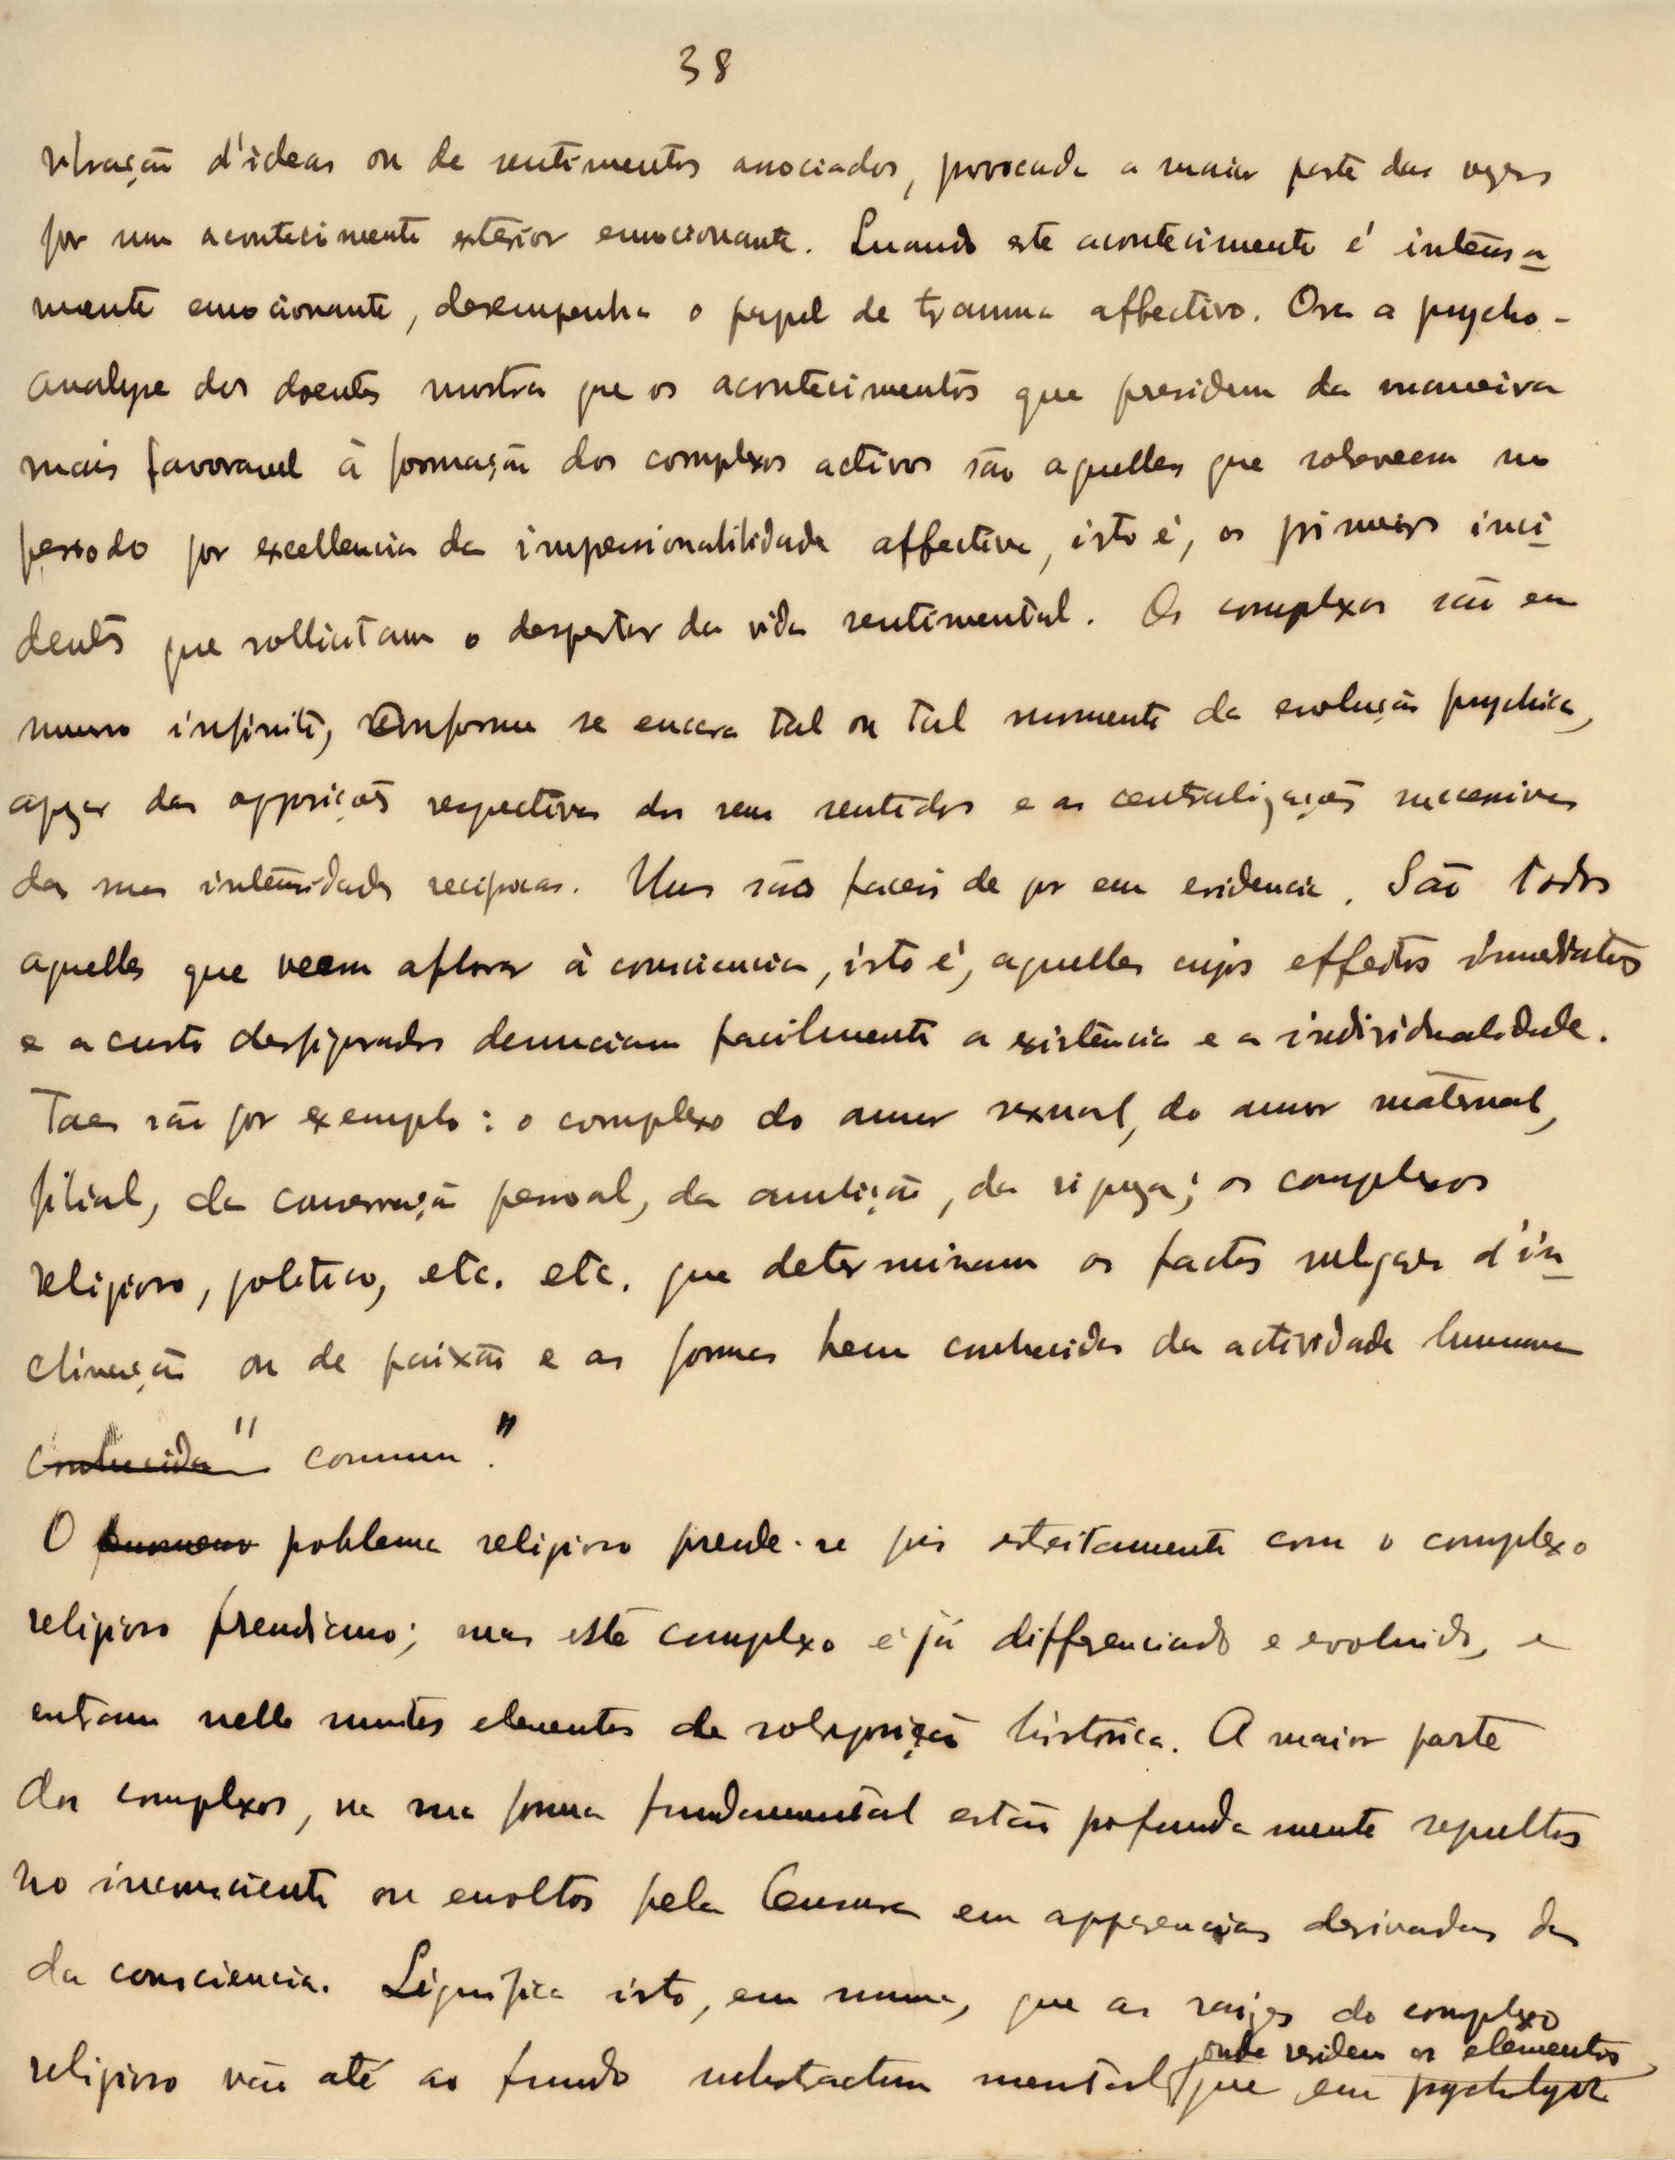 38
vibração d'ideas ou de sentimentos associados, provocada a maior parte das vezes
por um acontecimento exterior emocionante. Quando este acontecimento é intensa-
mente emocionante, desempenha o papel de trauma affectivo. Ora a psycho-
analyse dos doentes mostra que os acontecimentos que presidem da maneira
mais favoravel á formação dos complexos activos são aquelles que sobreveem no
periodo por excellencia da impressionabilidade affectiva, isto é, os primeiros inci-
dentes que sollicitam o despertar da vida sentimental. Os complexos são em
numero infinito, conforme se encara tal ou tal momento da evolução psychica,
apezar das opposições respectivas dos seus sentidos e as centralizações successivas
das suas intensidades reciprocas. Uns são faceis de por em evidencia. São todos
aquelles que veem aflorar á consciencia, isto é, aquelles cujos effeitos immediatos
e a custo desfigurados denunciam facilmente a existencia e a individualidade.
Taes são por exemplo: o complexo do amor sexual, do amor maternal,
filial, da conservação pessoal, da ambição, da riqueza; os complexos
religioso, politico, etc. etc. que determinam os factos vulgares d'in-
clinação ou de paixão e as formas bem conhecidas da actividade humana
conhecida" commum."
O phenomeno problema religioso prende-se pois estreitamente com o complexo
religioso freudiano; mas este complexo é já differenciado e evoluido, e
entram nelle muitos elementos de sobreposição historica. A maior parte
dos complexos, na sua forma fundamental estão profundamente sepultos
no inconsciente ou envoltos pela Censura em apparencias derivadas da
da consciencia. Significa isto, em summa, que as raizes do complexo
onde residem os elementos
religioso vão até ao fundo substractum mental que em